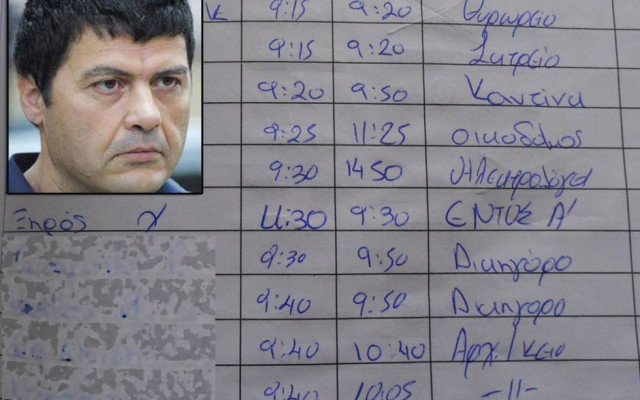 κ 9:15 9:20 Θυρωρείο
9:15 9:20 Ιατρείο
9:20 9:50 Καντίνα
9:25 11:25 οικοδόμος
9:30 1450 Ηλεκτρολόγοι
Ξηρός γ 11:30 9:30 ΕΝΤΟΣ Α'
9:30 9:50 Δικηγόρο
9:40 9:50 Δικηγόρο
9:40 10:40 Αρχ/κειο
9:40 10:05 -//-